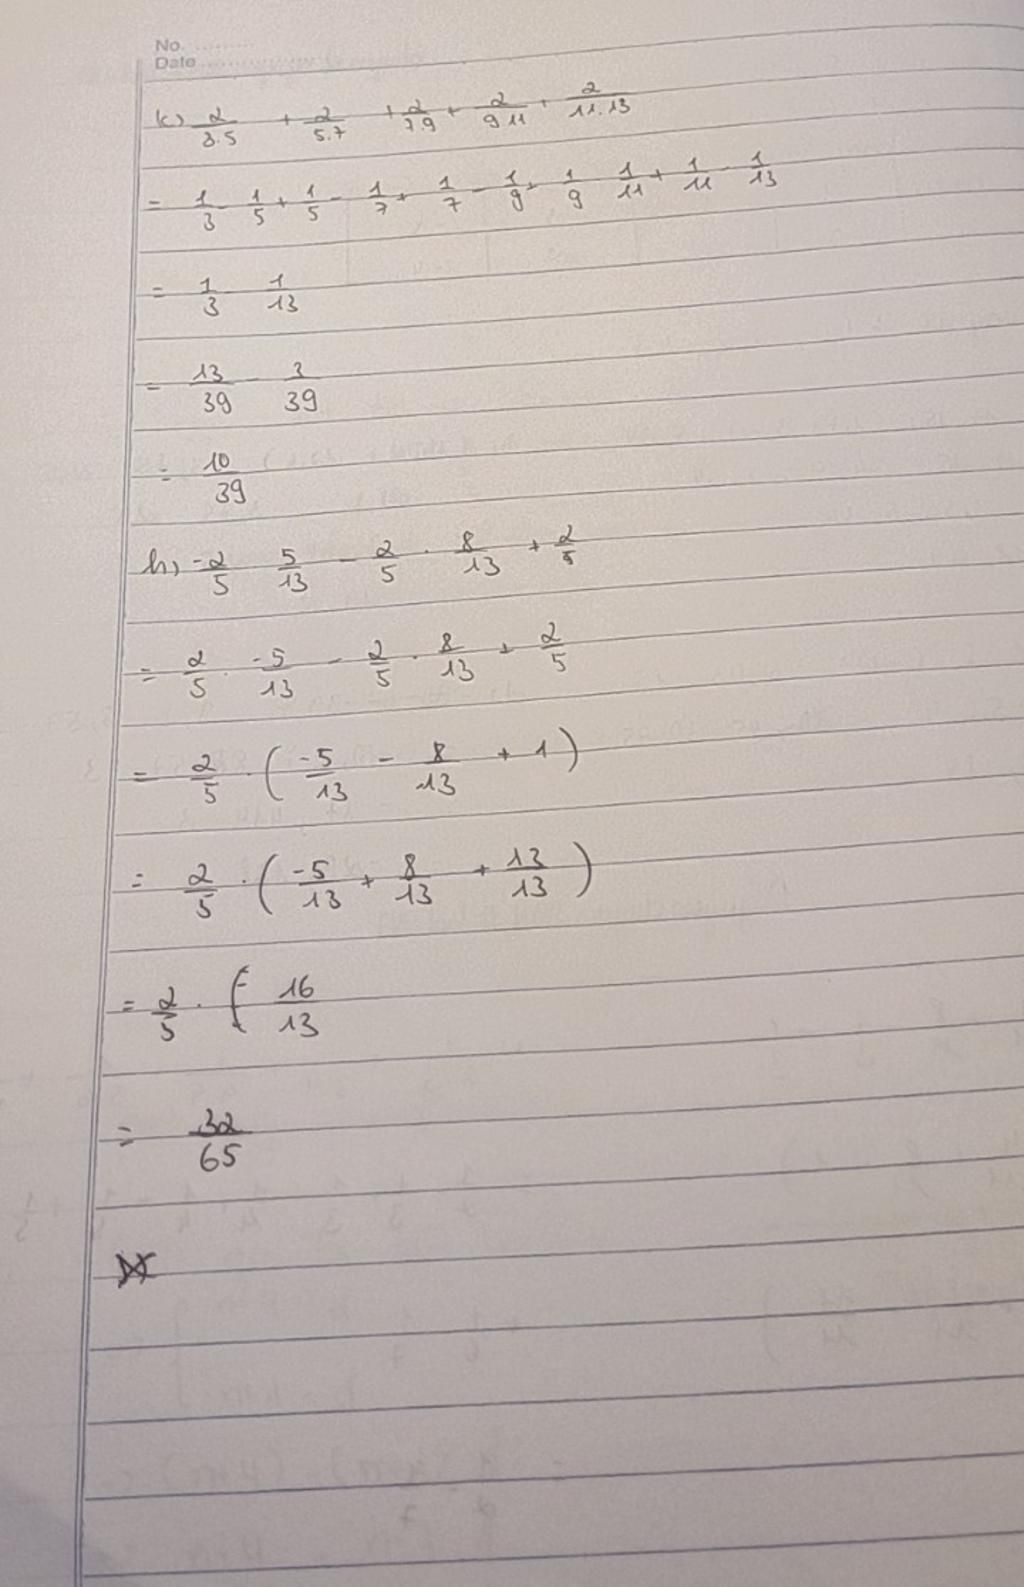 No. ..........
Date ....................
k) 2/3.5 + 2/5.7 + 2/7.9 + 2/9 11 + 2/11.13
= 1/3 - 1/5 + 1/5 - 1/7 + 1/7 - 1/9 + 1/9 - 1/11 + 1/11 - 1/13
= 1/3 - 1/13
= 13/39 - 3/39
= 10/39
h) -2/5 5/13 - 2/5 . 8/13 + 2/5
= 2/5 . -5/13 - 2/5 . 8/13 + 2/5
= 2/5 . ( -5/13 - 8/13 + 1 )
= 2/5 . ( -5/13 + 8/13 + 13/13 )
= 2/5 . 16/13
= 32/65